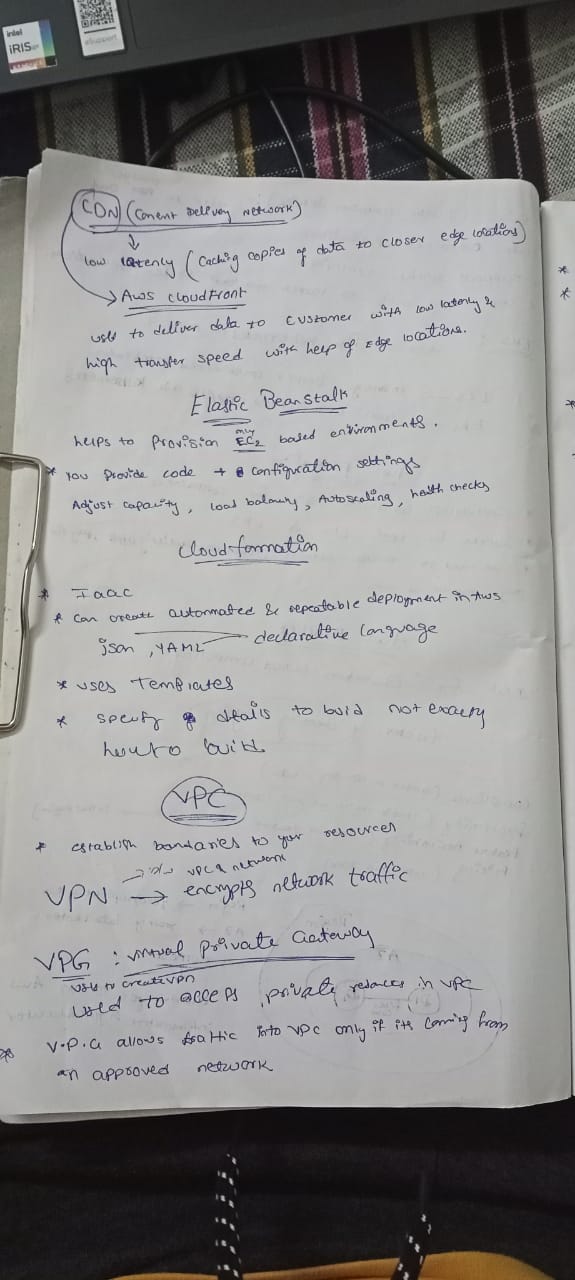 intel
iRIS
CDN (Conent Delivery Network)
low latenly (Caching copies of data to closer edge locations)
Aws CloudFront
used to deliver data to customer with low latenly &
high transfer speed with help of Edge locations.
Elastic Beanstalk
only
helps to Provision EC2 based environments.
* You Provide code + configuration settings
Adjust capacity, load balancing, Autoscaling, health checks
Cloudformation
* Iaac
* Can create automated & repeatable deployment in Aws
json, YAML declarative language
* uses Templates
* specify details to buid not exactly
how to build
VPC
* establish bondaries to your resources
VPC & network
VPN → encrypts network traffic
VPG : virtual Private Gateway
used to create VPN
used to access private resources in VPC
* V.P.G allows traffic into VPC only if its coming from
an approved network